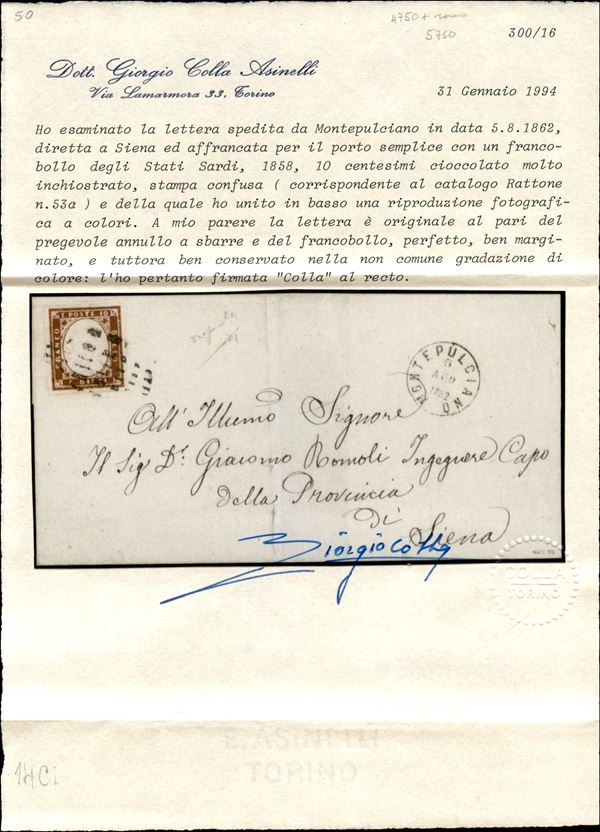 50
4750+
5750
300/16
Dott. Giorgio Colla Asinelli
Via Lamarmora 33, Torino
31 Gennaio 1994
Ho esaminato la lettera spedita da Montepulciano in data 5.8.1862,
diretta a Siena ed affrancata per il porto semplice con un franco-
bollo degli Stati Sardi, 1858, 10 centesimi cioccolato molto
inchiostrato, stampa confusa ( corrispondente al catalogo Rattone
n.53a ) e della quale ho unito in basso una riproduzione fotografi-
ca a colori. A mio parere la lettera è originale al pari del
pregevole annullo a sbarre e del francobollo, perfetto, ben margi-
nato, e tuttora ben conservato nella non comune gradazione di
colore: l'ho pertanto firmata "Colla" al recto.
C. POSTE 10
FRANCO
MONTEPULCIANO
5
AGO
1862
All' Illumo Signore
Il Sig Dr. Giacomo Romoli Ingegnere Capo
della Provincia
di
Siena
Giorgio Colla
COLLA
TORINO
E. ASINELLI
TORINO